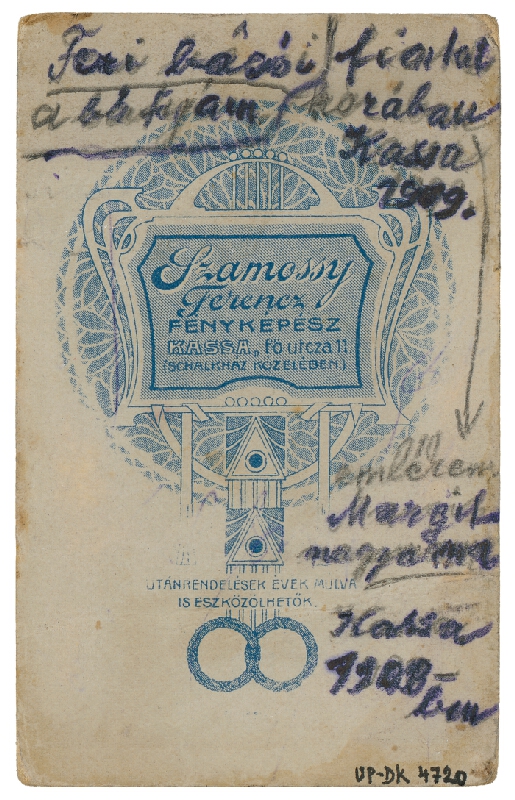 Feri bácsi fiatal
a bátyám korában
Kassa
1909.
Szamossy
Ferencz
FÉNYKÉPÉSZ
KASSA, Fő utcza 11.
(SCHALKHÁZ KÖZELÉBEN.)
Margit
nagymama
UTÁNRENDELÉSEK ÉVEK MULVA
IS ESZKÖZÖLHETŐK.
Kassa
1908-
ban
UP-DK 4720